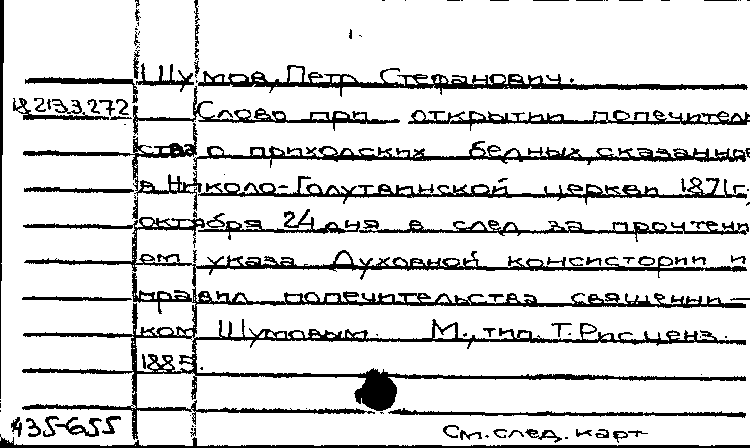 Шумов, Петр Стефанович.
18.213.3.272 Слово при открытии попечитель
ства о приходских бедных, сказанное
в Николо-Голутвинской церкви 1871г.,
октября 24 дня в след за прочтени
ем указа Духовной консистории и
правил попечительства священни-
ком Шумовым. М., тип. Т. Рис, ценз.
1885.
435-655
См. след. карт